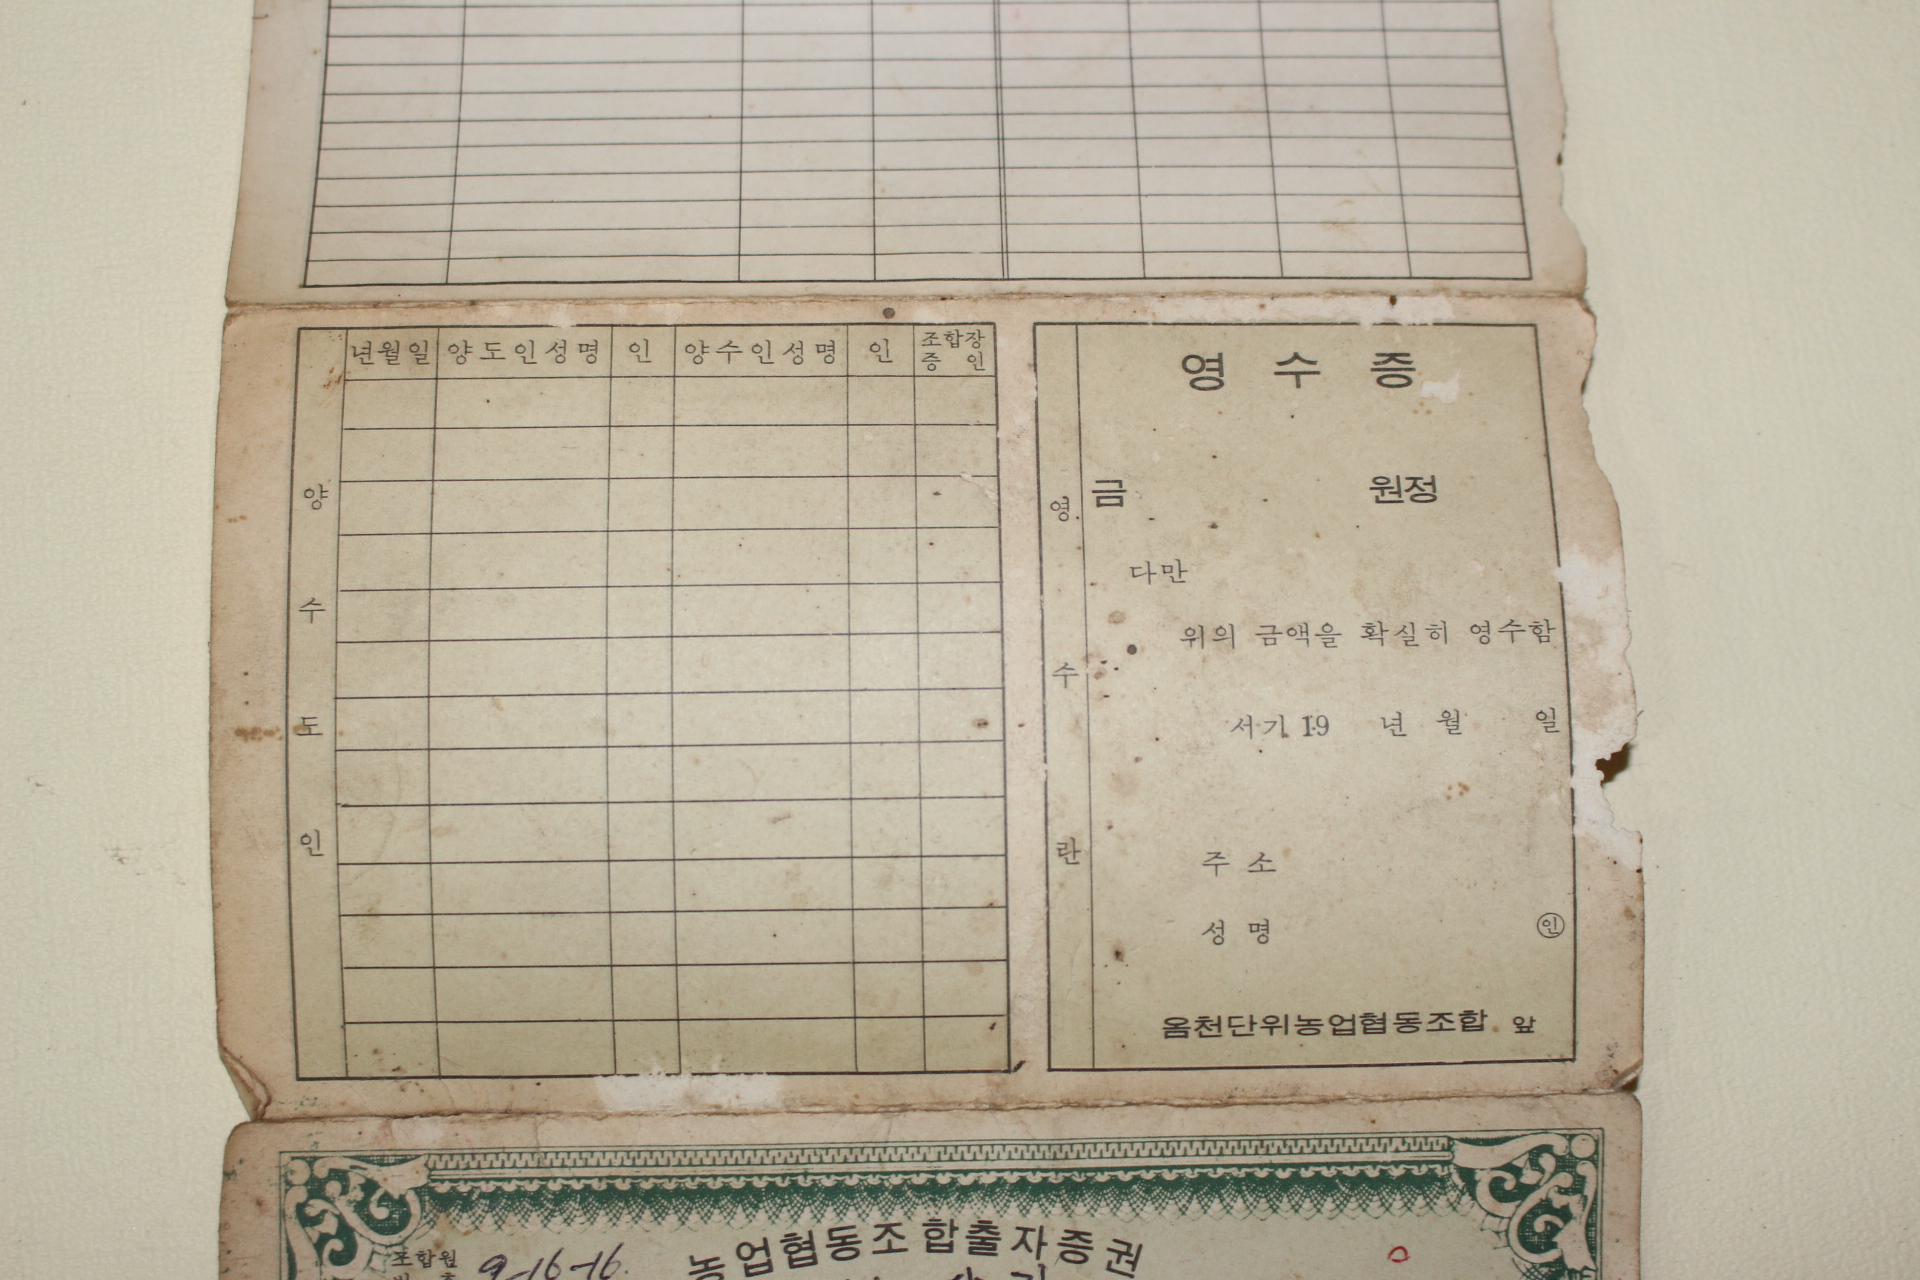 년월일 양도인성명 인 양수인성명 인 조합장
증 인
양
수
도
인
영수증
영
수
란
금 원정
다만
위의 금액을 확실히 영수함
서기 19 년 월 일
주소
성명 ㊞
옴천단위농업협동조합 앞
농업협동조합출자증권
조합원 9-16-16.